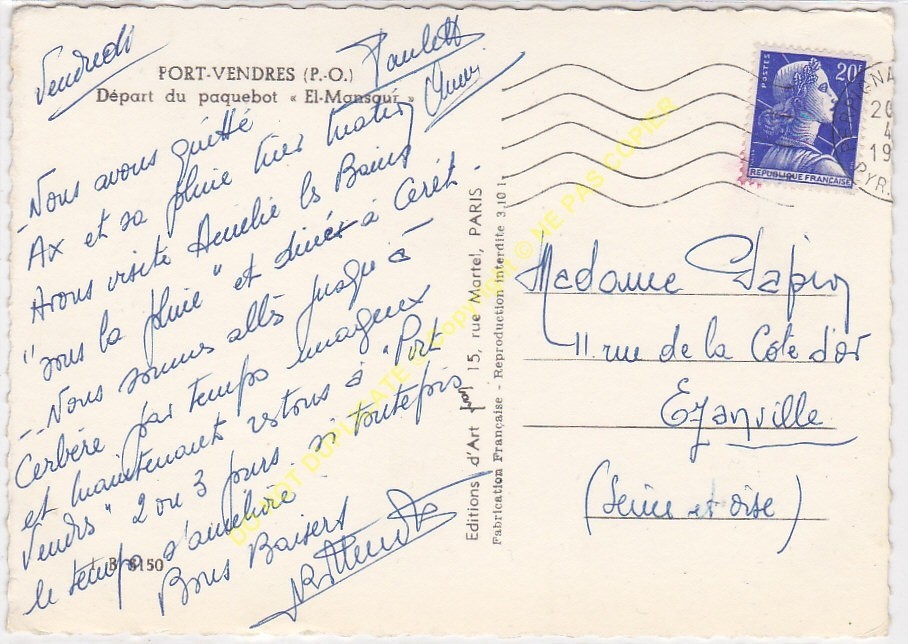 Vendredi
PORT-VENDRES (P.-O.)
Départ du paquebot « El-Mansour »
Paulette
Nous avons quitté
Ax et sa pluie hier matin
Avons visité Amélie les Bains
"sous la pluie" et dîner à Ceret -
- Nous sommes allés jusqu'à
Cerbère par temps nuageux
et maintenant restons à "Port
Vendres" 2 ou 3 jours si toutefois
le temps s'améliore
Bons Baisers
L B 8150
Editions d'Art Yvon 15, rue Martel, PARIS
Fabrication Française - Reproduction interdite 3.10 1.
POSTES
20F
REPUBLIQUE FRANÇAISE
20
4
19
PYR.
Madame
11 rue de la Côte d'or
Ezanville
(Seine et Oise)
DO NOT DUPLICATE © Copyright © NE PAS COPIER